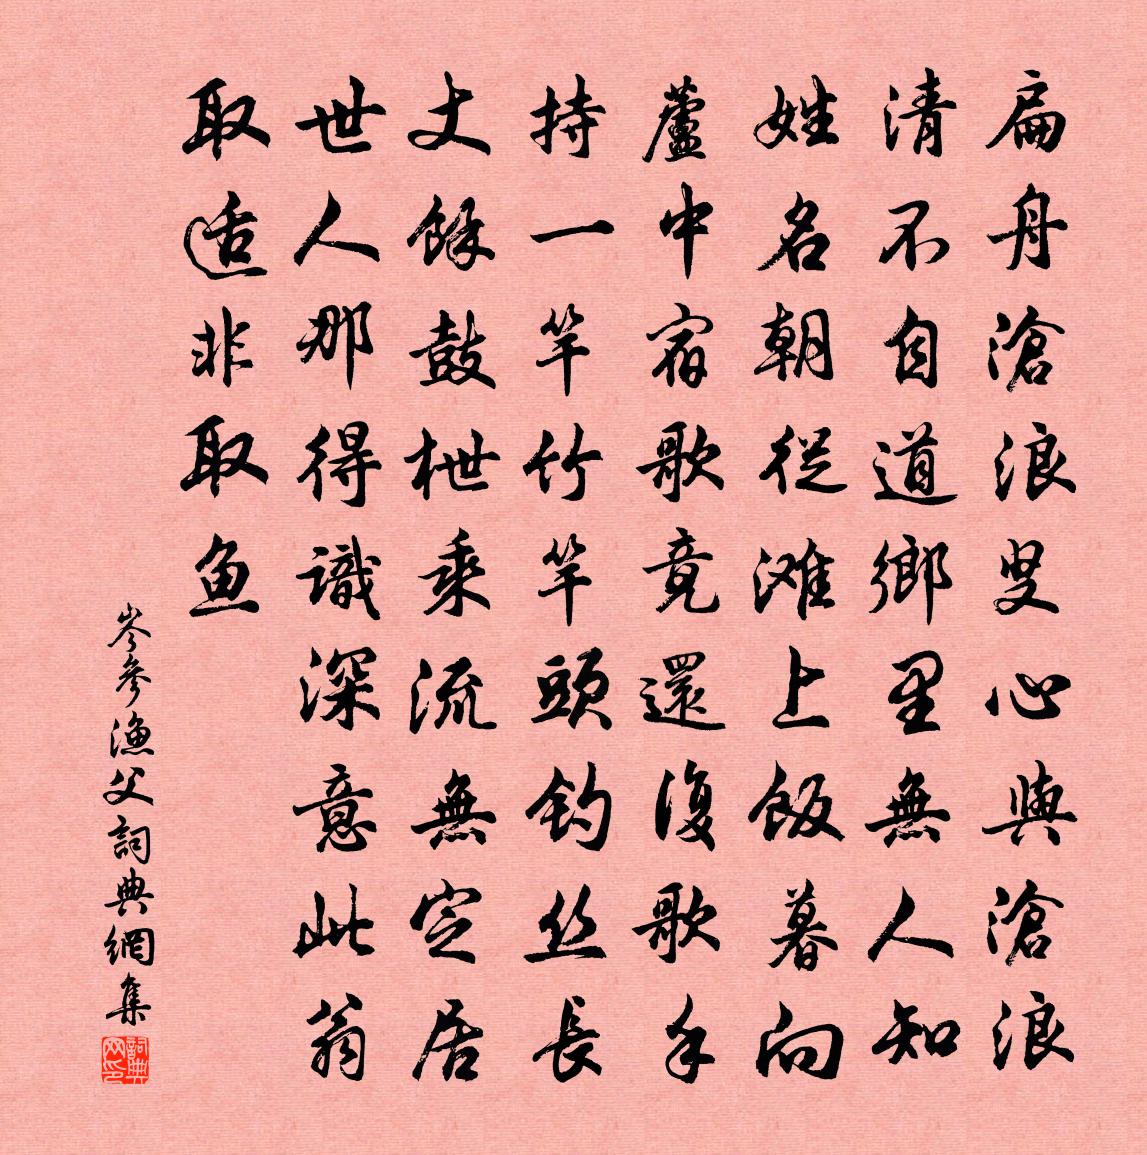 扁舟滄浪叟心與滄浪
清不自道鄉里無人知
姓名朝從滩上飯暮向
蘆中宿歌竟還復歌手
持一竿竹竿頭钓丝長
丈餘鼓枻乘流無定居
世人那得識深意此翁
取适非取鱼
岑參漁父詞典網集
詞典网印